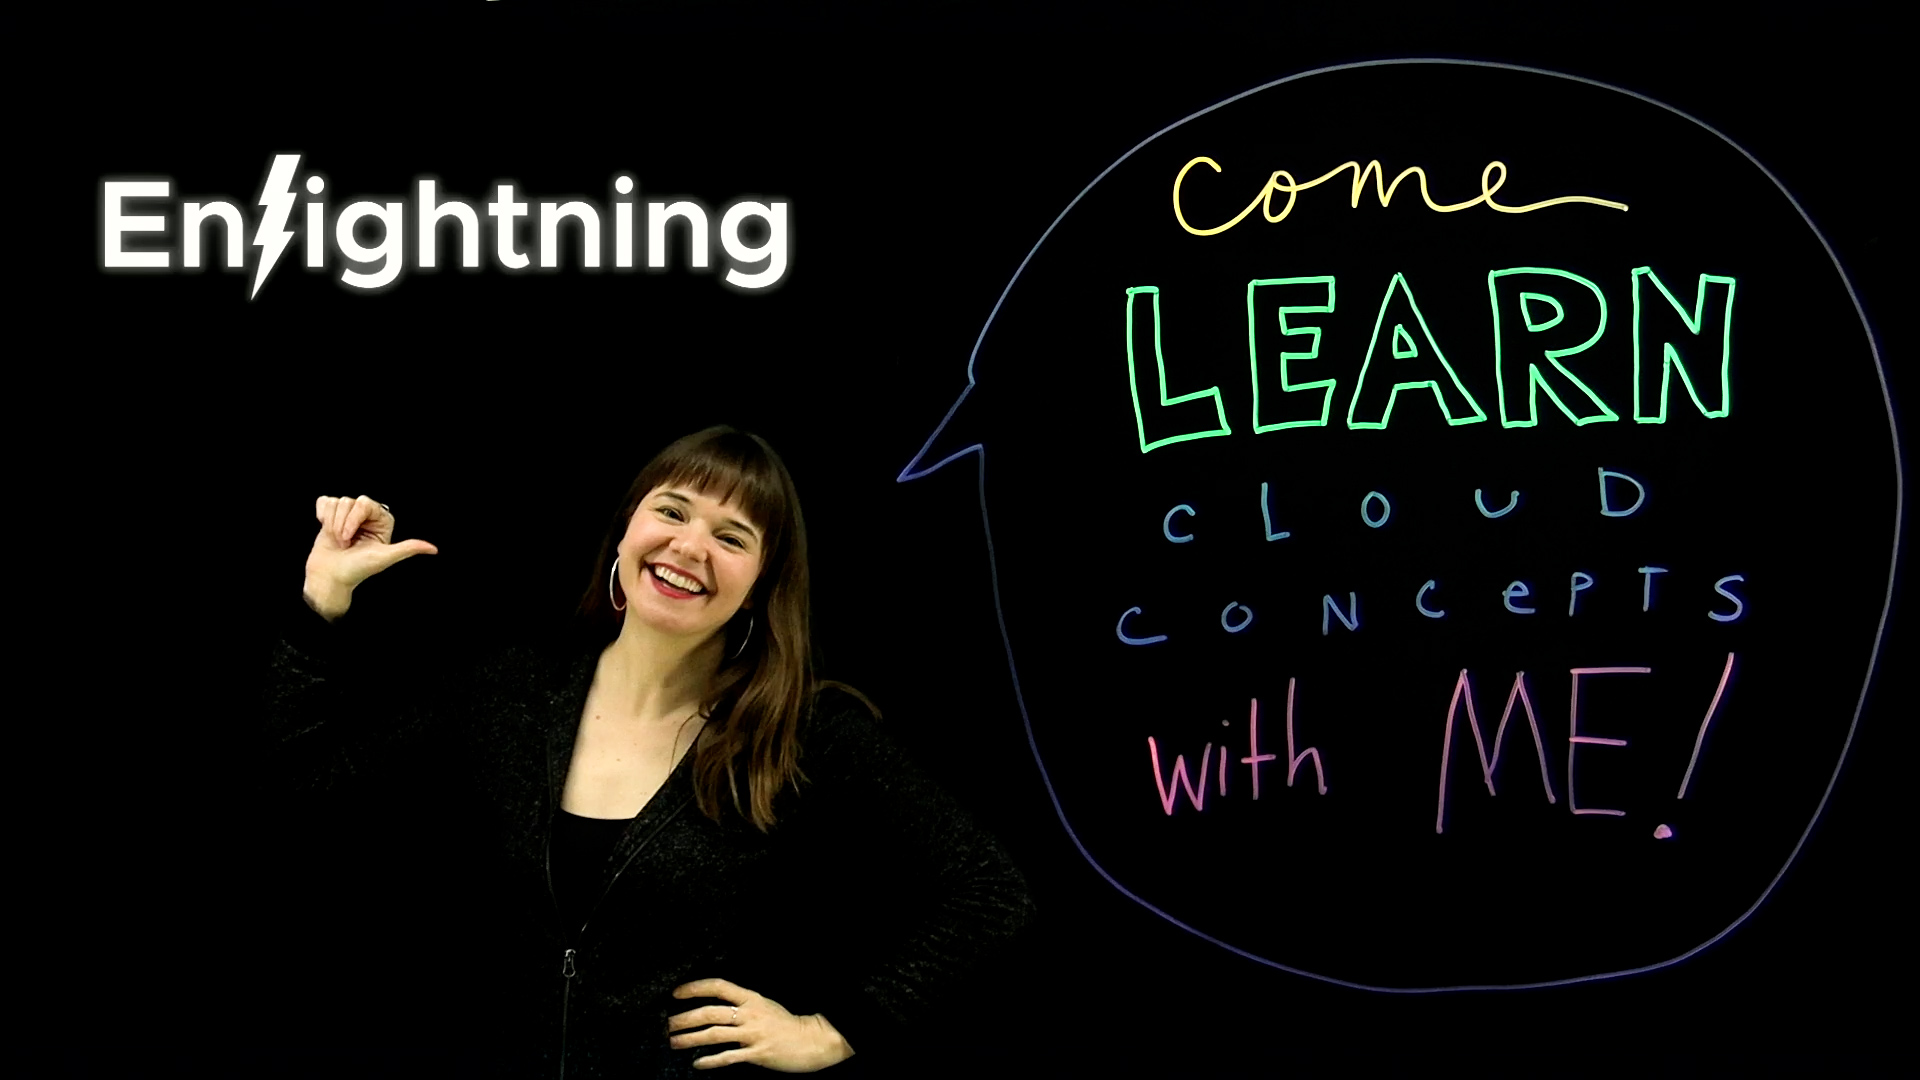 Enlightning
come
LEARN
CLOUD
CONCePTS
with ME!